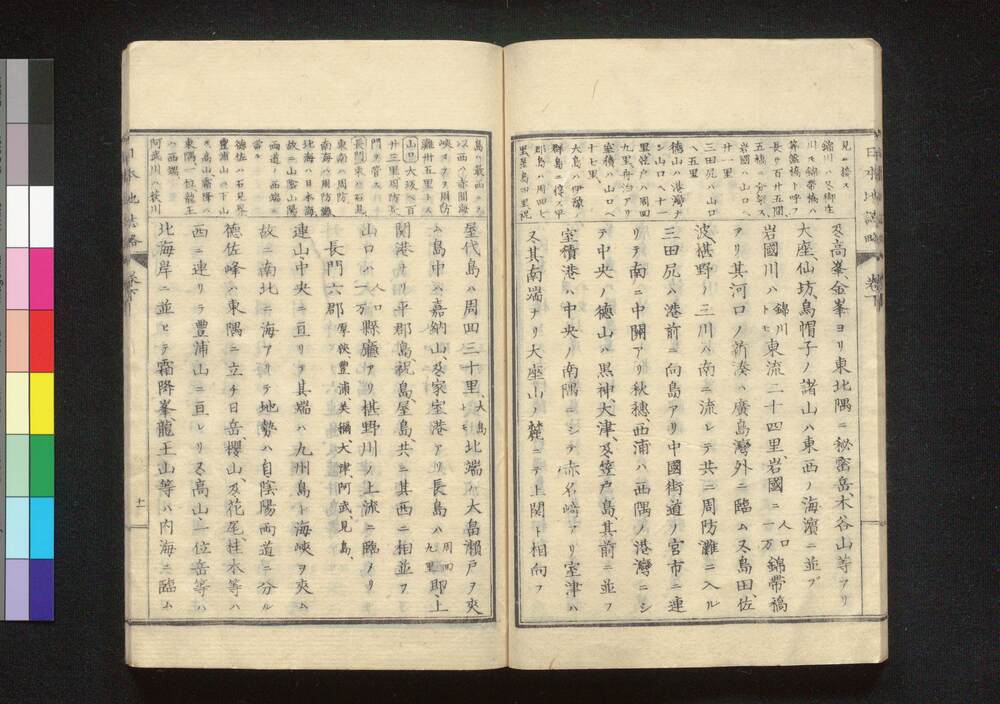 日本地誌略
卷下
見ユ於ス
錦川ハ又御庄
川ヲ錦帶橋ハ
算盤橋ト呼フ
長サ百廿五間
五橋ニ分架ス
岩國ハ山口ヘ
廿一里
三田尻ハ山口
ヘ五里
德山ハ港灣ナ
シ山口ヘ十一
里笠戸ハ周四
九里舟泊アリ
室積ハ山口ヘ
十七里
大島ハ伊豫ノ
群島ニ接ス平
郡島ハ周四七
里屋島四里祝
及高峯、金峯ヨリ東北隅ニ秘密岳、木谷山等アリ
大座、仙坊、烏帽子ノ諸山ハ東西ノ海濱ニ並ブ
岩國川ハ錦川トモ東流二十四里、岩國人口一万ニ錦帶橋
アリ其河口ノ新湊ハ廣島灣外ニ臨ム又島田、佐
波、椹野ノ三川ハ南ニ流レテ共ニ周防灘ニ入ル
三田尻ハ港前ニ向島アリ中國街道ノ宮市ニ連
リテ南ニ中關アリ秋穗、西浦ハ西隅ノ港灣ニシ
テ中央ノ德山ハ黒神、大津、及笠戸島、其前ニ並フ
室積港ハ中央ノ南隅ニシテ赤名崎アリ室津ハ
又其南端ナリ大座山ノ麓ニテ上關ト相向フ
島ハ最西ニテ
以西ハ赤間海
峽ヲヌス周防
灘卅五里トス
山口大坂ヘ百
廿三里周防長
門ヲ管ス
長門東ハ石見
東南ハ周防
南海ハ周防灘
北海ハ日本海
故ニ山陰山陽
兩道ノ西端ニ
當ル
德佐ハ石見界
豐浦山ハ下山
又高山霜降ハ
東隅一位龍王
ハ西端
阿武川ハ萩川
屋代島ハ周四三十里、大島トモ北端ハ大畠瀬戸ヲ夾
ム島中ハ嘉納山、及家室港アリ長島ハ周四九里郎、上
關港ナリ平郡島、祝島、屋島、共ニ其西ニ相並フ
山口ハ人口一万縣廳アリ椹野川ノ上流ニ臨メリ
長門六郡厚狹、豐浦、美禰、大津、阿武、見島、
連山中央ニ亘リテ其端ハ九州島ト海峽ヲ夾ム
故ニ南北ニ海アリテ地勢ハ自陰陽兩道ニ分ル
德佐峰ハ東隅ニ立チ日岳、櫻山、及花尾、桂木等ハ
西ニ連リテ豐浦山ニ亘レリ又高山、一位岳等ハ
北海岸ニ並ヒテ霜降峯、龍王山等ハ内海ニ臨ム
日本地誌略
卷下
十一